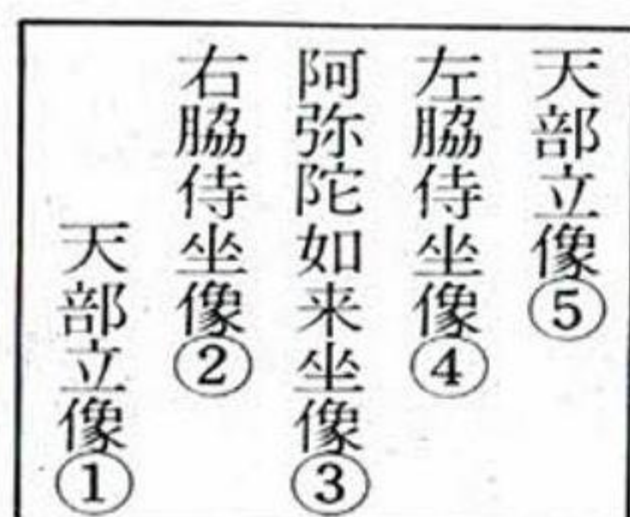 天部立像⑤
左脇侍坐像④
阿弥陀如来坐像③
右脇侍坐像②
天部立像①